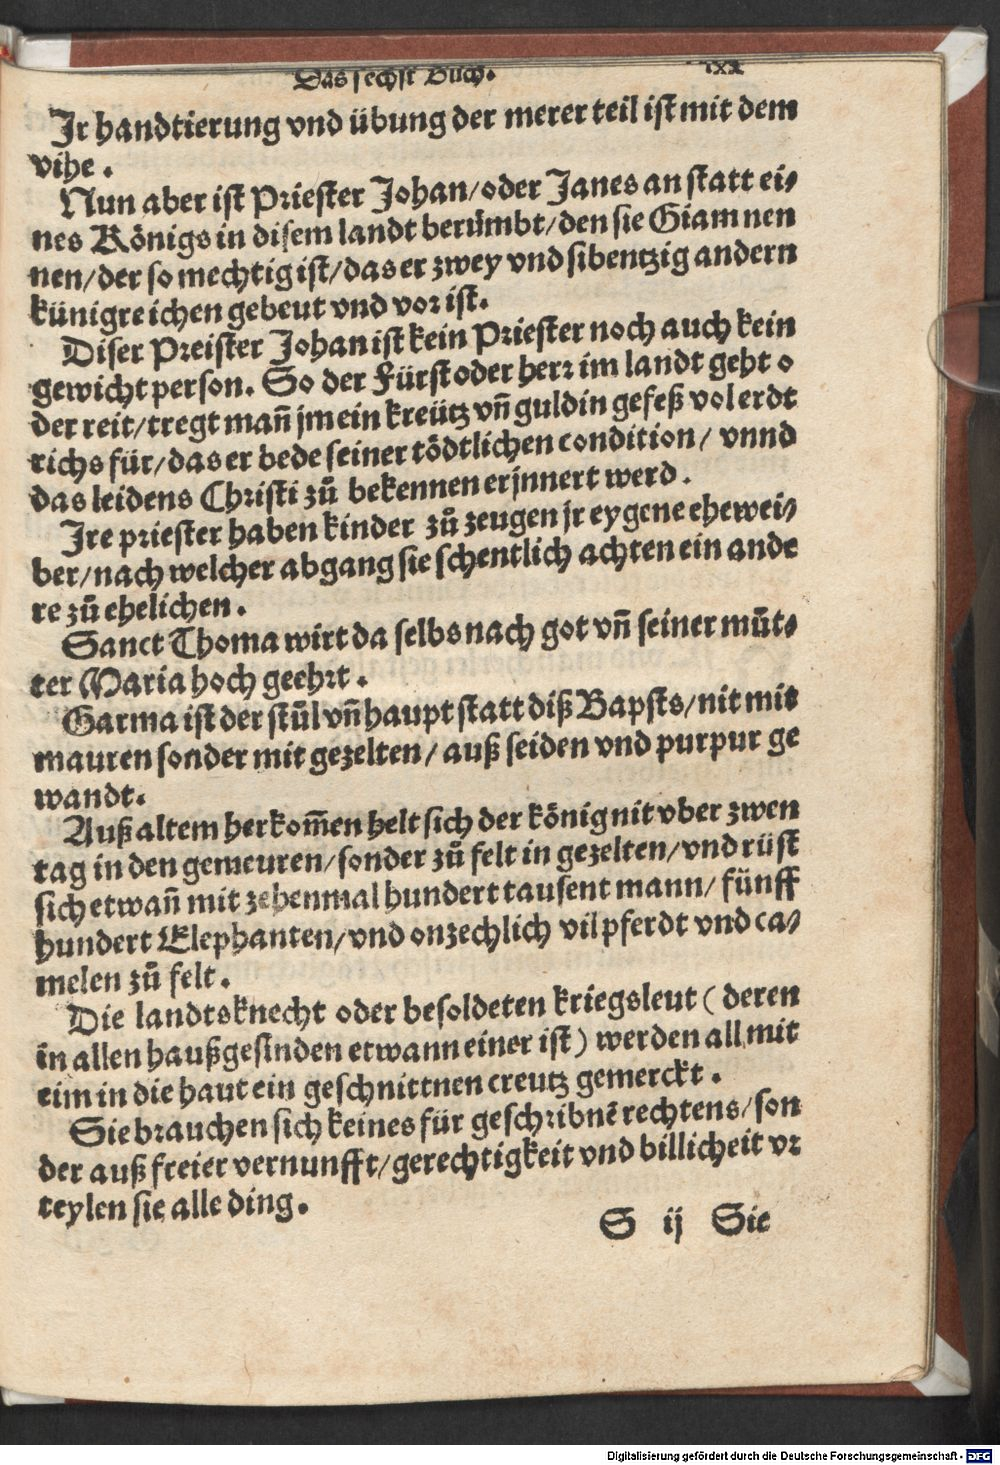 Das sechst Buch. lxx
Jr handtierung vnd übung der merer teil ist mit dem
vihe.
Nun aber ist Priester Johan/oder Janes an statt ei⸗
nes Königs in disem landt berümbt/den sie Giam nen
nen/der so mechtig ist/das er zwey vnd sibentzig andern
künigreichen gebeut vnd vor ist.
Diser Preister Johan ist kein Priester noch auch kein
gewicht person. So der Fürst oder herr im landt geht o
der reit/tregt mañ jm ein kreütz vñ guldin gefeß vol erdt
richs für/das er bede seiner tödtlichen condition/ vnnd
das leidens Christi zů bekennen erjnnert werd.
Jre priester haben kinder zů zeugen jr eygene ehewei⸗
ber/nach welcher abgang sie schentlich achten ein ande
re zů ehelichen.
Sanct Thoma wirt da selbs nach got vñ seiner můt⸗
ter Maria hoch geehrt.
Garma ist der stůl vñ haupt statt diß Bapsts/nit mit
mauren sonder mit gezelten/ auß seiden vnd purpur ge
wandt.
Auß altem herkom̄en helt sich der könig nit vber zwen
tag in den gemeuren/sonder zů felt in gezelten/vnd rüst
sich etwañ mit zehenmal hundert tausent mann/ fünff
hundert Elephanten/vnd onzechlich vil pferdt vnd ca⸗
melen zů felt.
Die landtsknecht oder besoldeten kriegsleut (deren
in allen haußgesinden etwann einer ist) werden all mit
eim in die haut ein geschnittnen creutz gemerckt.
Sie brauchen sich keines für geschribnē rechtens/son
der auß freier vernunfft/gerechtigkeit vnd billicheit vr
teylen sie alle ding.
S ij Sie
Digitalisierung gefördert durch die Deutsche Forschungsgemeinschaft - DFG